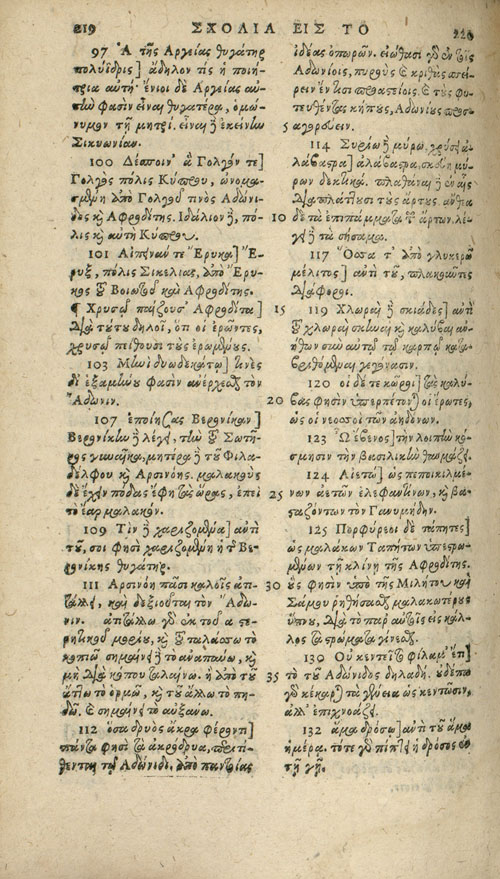 219 ΣΧΟΛΙΑ ΕΙΣ ΤΟ 220
97 Ἁ τῆς Ἀργείας θυγάτηρ
πολύϊδρις] ἄδηλον τίς ἡ ποιή-
τρια αὐτή· ἔνιοι δὲ Ἀργείας αὐ-
τὴν φασὶν εἶναι θυγατέρα, ὁμώ-
νυμον τῇ μητρί. εἶναι δὲ ἐκείνην
Σικυωνίαν.
100 Δέσποιν' ἃ Γολγόν τε]
Γολγὸς πόλις Κύπρου, ὠνομα-
σμένη ἀπὸ Γολγοῦ τινὸς Ἀδώνι-
δος καὶ Ἀφροδίτης. Ἰδάλιον δὲ, πό-
λις καὶ αὐτὴ Κύπρου.
101 Αἰπεινάν τε Ἔρυκα] Ἔ-
ρυξ, πόλις Σικελίας, ἀπὸ Ἔρυ-
κος τοῦ Βοιωτοῦ καὶ Ἀφροδίτης.
¶ Χρυσῷ παίζουσ' Ἀφροδίτα]
διὰ τούτου δηλοῖ, ὅτι οἱ ἐρῶντες,
χρυσῷ πείθουσι τοὺς ἐρωμένους.
103 Μηνὶ δυωδεκάτῳ] τινὲς
δι' ἑξαμήνου φασὶν ἀνέρχεσθαι τὸν
Ἄδωνιν.
107 ἐποίησας Βερενίκαν]
Βερενίκην δὲ λέγει, τὴν τοῦ Σωτῆ-
ρος γυναῖκα, μητέρα δὲ τοῦ Φιλα-
δέλφου καὶ Ἀρσινόης. μαλακοὺς
δὲ ἔχειν πόδας ἔφη τὰς ὥρας, ἐπεὶ
τὸ ἔαρ μαλακόν.
109 Τὶν δὲ χαριζομένα] ἀντὶ
τοῦ, σοι φησὶ χαριζομένη ἡ τῆς Βε-
ρενίκης θυγάτηρ.
111 Ἀρσινόη πᾶσι καλοῖς ἀτι-
τάλλει, καὶ δεξιοῦται τὸν Ἄδω-
νιν. ἀτιτάλλω
κοπιῶ σημαίνει τὸ ἀναπαύω, καὶ
μὴ
τὸ ὁρμῶ, καὶ τοῦ ἄλλω τὸ πη-
δῶ. καὶ σημαίνει τὸ αὐξάνω.
112 ὅσα δρυὸς ἄκρα φέροντι]
πάντα φησὶ τὰ ἀκρόδρυα, προτί-
θενται τῷ Ἀδώνιδι, ἀπὸ παντοίας
ἰδέας ὀπωρῶν. εἰώθασι γὰρ ἐν τοῖς
Ἀδωνίοις, πυροὺς καὶ κριθὰς σπεί-
ρειν ἔν τισι προαστείοις. καὶ τοὺς φυ-
τευθέντας κήπους, Ἀδωνίους προσ-
5 αγορεύειν.
114 Συρίῳ δὲ μύρῳ, χρύσει' ἀ-
λάβαστρα] ἀλάβαστρα, σκεύη μύ-
ρων δεκτικά. πλαθάνᾳ δὲ ἐν αἷς
διαπλάττουσι τοὺς ἄρτους. ἄνθεα
10 δὲ τὰ ἐπιπάσματα τῶν ἄρτων. λέ-
γει δὲ τὰ σήσαμα.
117 Ὅσσα τ' ἀπὸ γλυκερῶ
μέλιτος] ἀντὶ τοῦ, πλακοῦντες
διάφοροι.
15 119 Χλωραὶ δὲ σκιάδες] ἀντὶ
τοῦ χλωραὶ σκηναὶ καὶ καλύβαι ἀν-
ήθων σὺν αὐτῷ τῷ καρπῷ κατα-
βριθόμεναι γεγόνασιν.
120 οἱ δέ τε κῶροι] τὰς καλύ-
20 βας φησὶν ὑπερπέτονται οἱ ἔρωτες,
ὡς οἱ νεοσσοὶ τῶν ἀηδόνων.
123 Ὢ ἔβενος] τὴν λοιπὴν κό-
σμησιν τὴν βασιλικὴν θαυμάζει.
124 Αἰετῷ] ὡς πεποικιλμέ-
25 νων ἀετῶν ἐλεφαντίνων, καὶ βα-
σταζόντων τὸν Γανυμήδην.
125 Πορφύρεοι δὲ τάπητες]
ὡς μαλακῶν ταπήτων ὑπεστρω-
μένων τῇ κλίνῃ τῆς Ἀφροδίτης.
30 οὓς φησὶν ὑπὸ τῆς Μιλήτου καὶ
Σάμου ῥηθήσεσθαι μαλακωτέρους
ὕπνου, διὰ τὸ παρ' αὐτοῖς εἰς κάλ-
λος τὰ στρώματα γίνεσθαι.
130 Οὐ κεντεῖ τὸ φίλαμ' ἔτι]
35 τὸ τοῦ Ἀδώνιδος δηλαδή. οὐδέπω
γὰρ κέκαρται τὰ γένεια ὡς κεντῶσιν,
ἀλλ' ἐπιχνοάζει.
132 ἅμα δρόσῳ] ἀντὶ τοῦ ἅμα
ἡμέρᾳ. τότε γὰρ πίπτει ἡ δρόσος ἐν
τῇ γῇ.